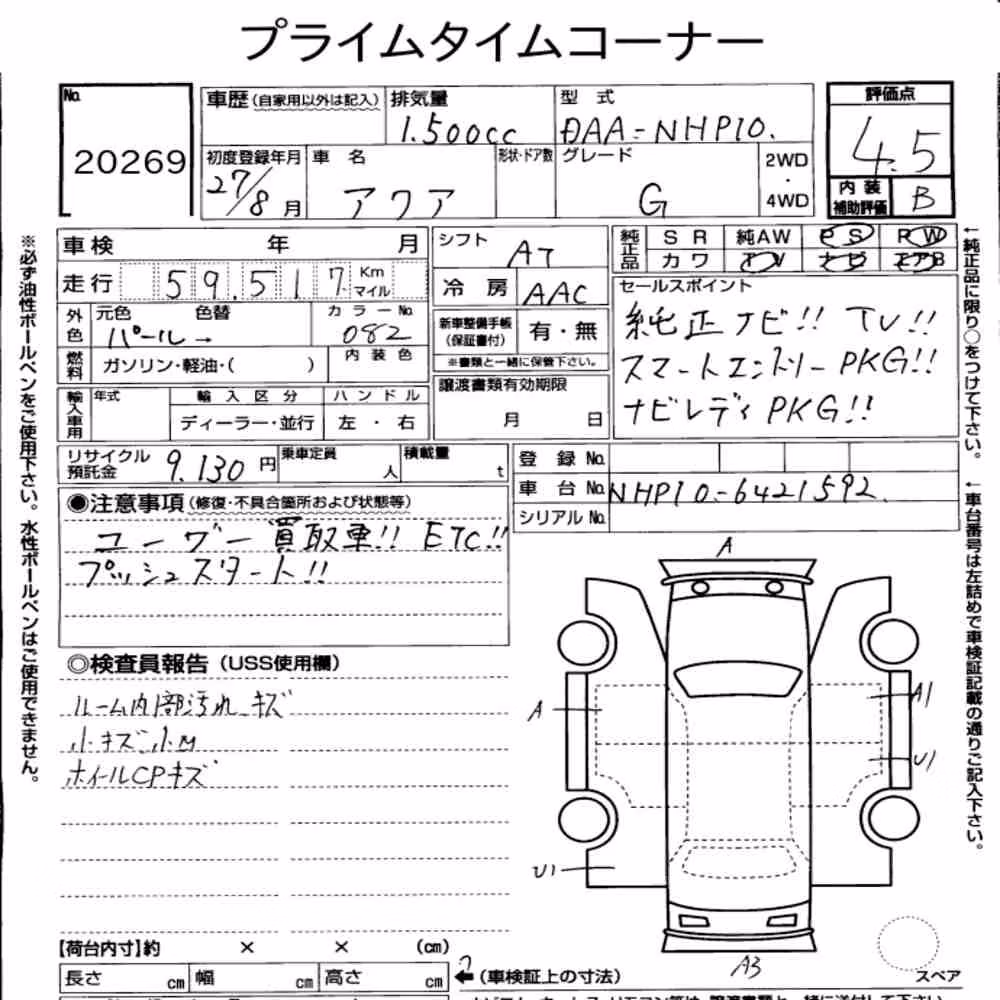 プライムタイムコーナー
No. 20269
車歴(自家用以外は記入) 排気量 1.500cc 型 式 DAA-NHP10.
評価点 4.5
初度登録年月 27/8月 車 名 アクア 形状・ドア数 グレード G 2WD・4WD
内装補助評価 B
車検 年 月
走行 59.517 Km マイル
外色 元色 パール→ 色替 カラーNo. 082
燃料 ガソリン・軽油・( ) 内装色
輸入車用 年式 輸入区分 ハンドル
ディーラー・並行 左・右
シフト AT
冷房 AAC
新車整備手帳(保証書付) 有・無
※書類と一緒に保管下さい。
譲渡書類有効期限
月 日
純正品 SR 純AW PS PW
カワ TV ナビ エアB
セールスポイント
純正ナビ!! TV!!
スマートエントリーPKG!!
ナビレディPKG!!
リサイクル預託金 9.130円 乗車定員 人 積載量 t
登録No.
車台No. NHP10-6421592.
シリアルNo.
◉注意事項(修復・不具合箇所および状態等)
ユーザー買取車!! ETC!!
プッシュスタート!!
◎検査員報告(USS使用欄)
ルーム内部汚れ キズ
小キズ 小M
ホイールCPキズ
A
A
A1
U1
U1
A3
スペア
【荷台内寸】約 × × (cm)
長さ cm 幅 cm 高さ cm ←(車検証上の寸法)
※必ず油性ボールペンをご使用下さい。水性ボールペンはご使用できません。
←純正品に限り○をつけて下さい。
←車台番号は左詰めで車検証記載の通りご記入下さい。